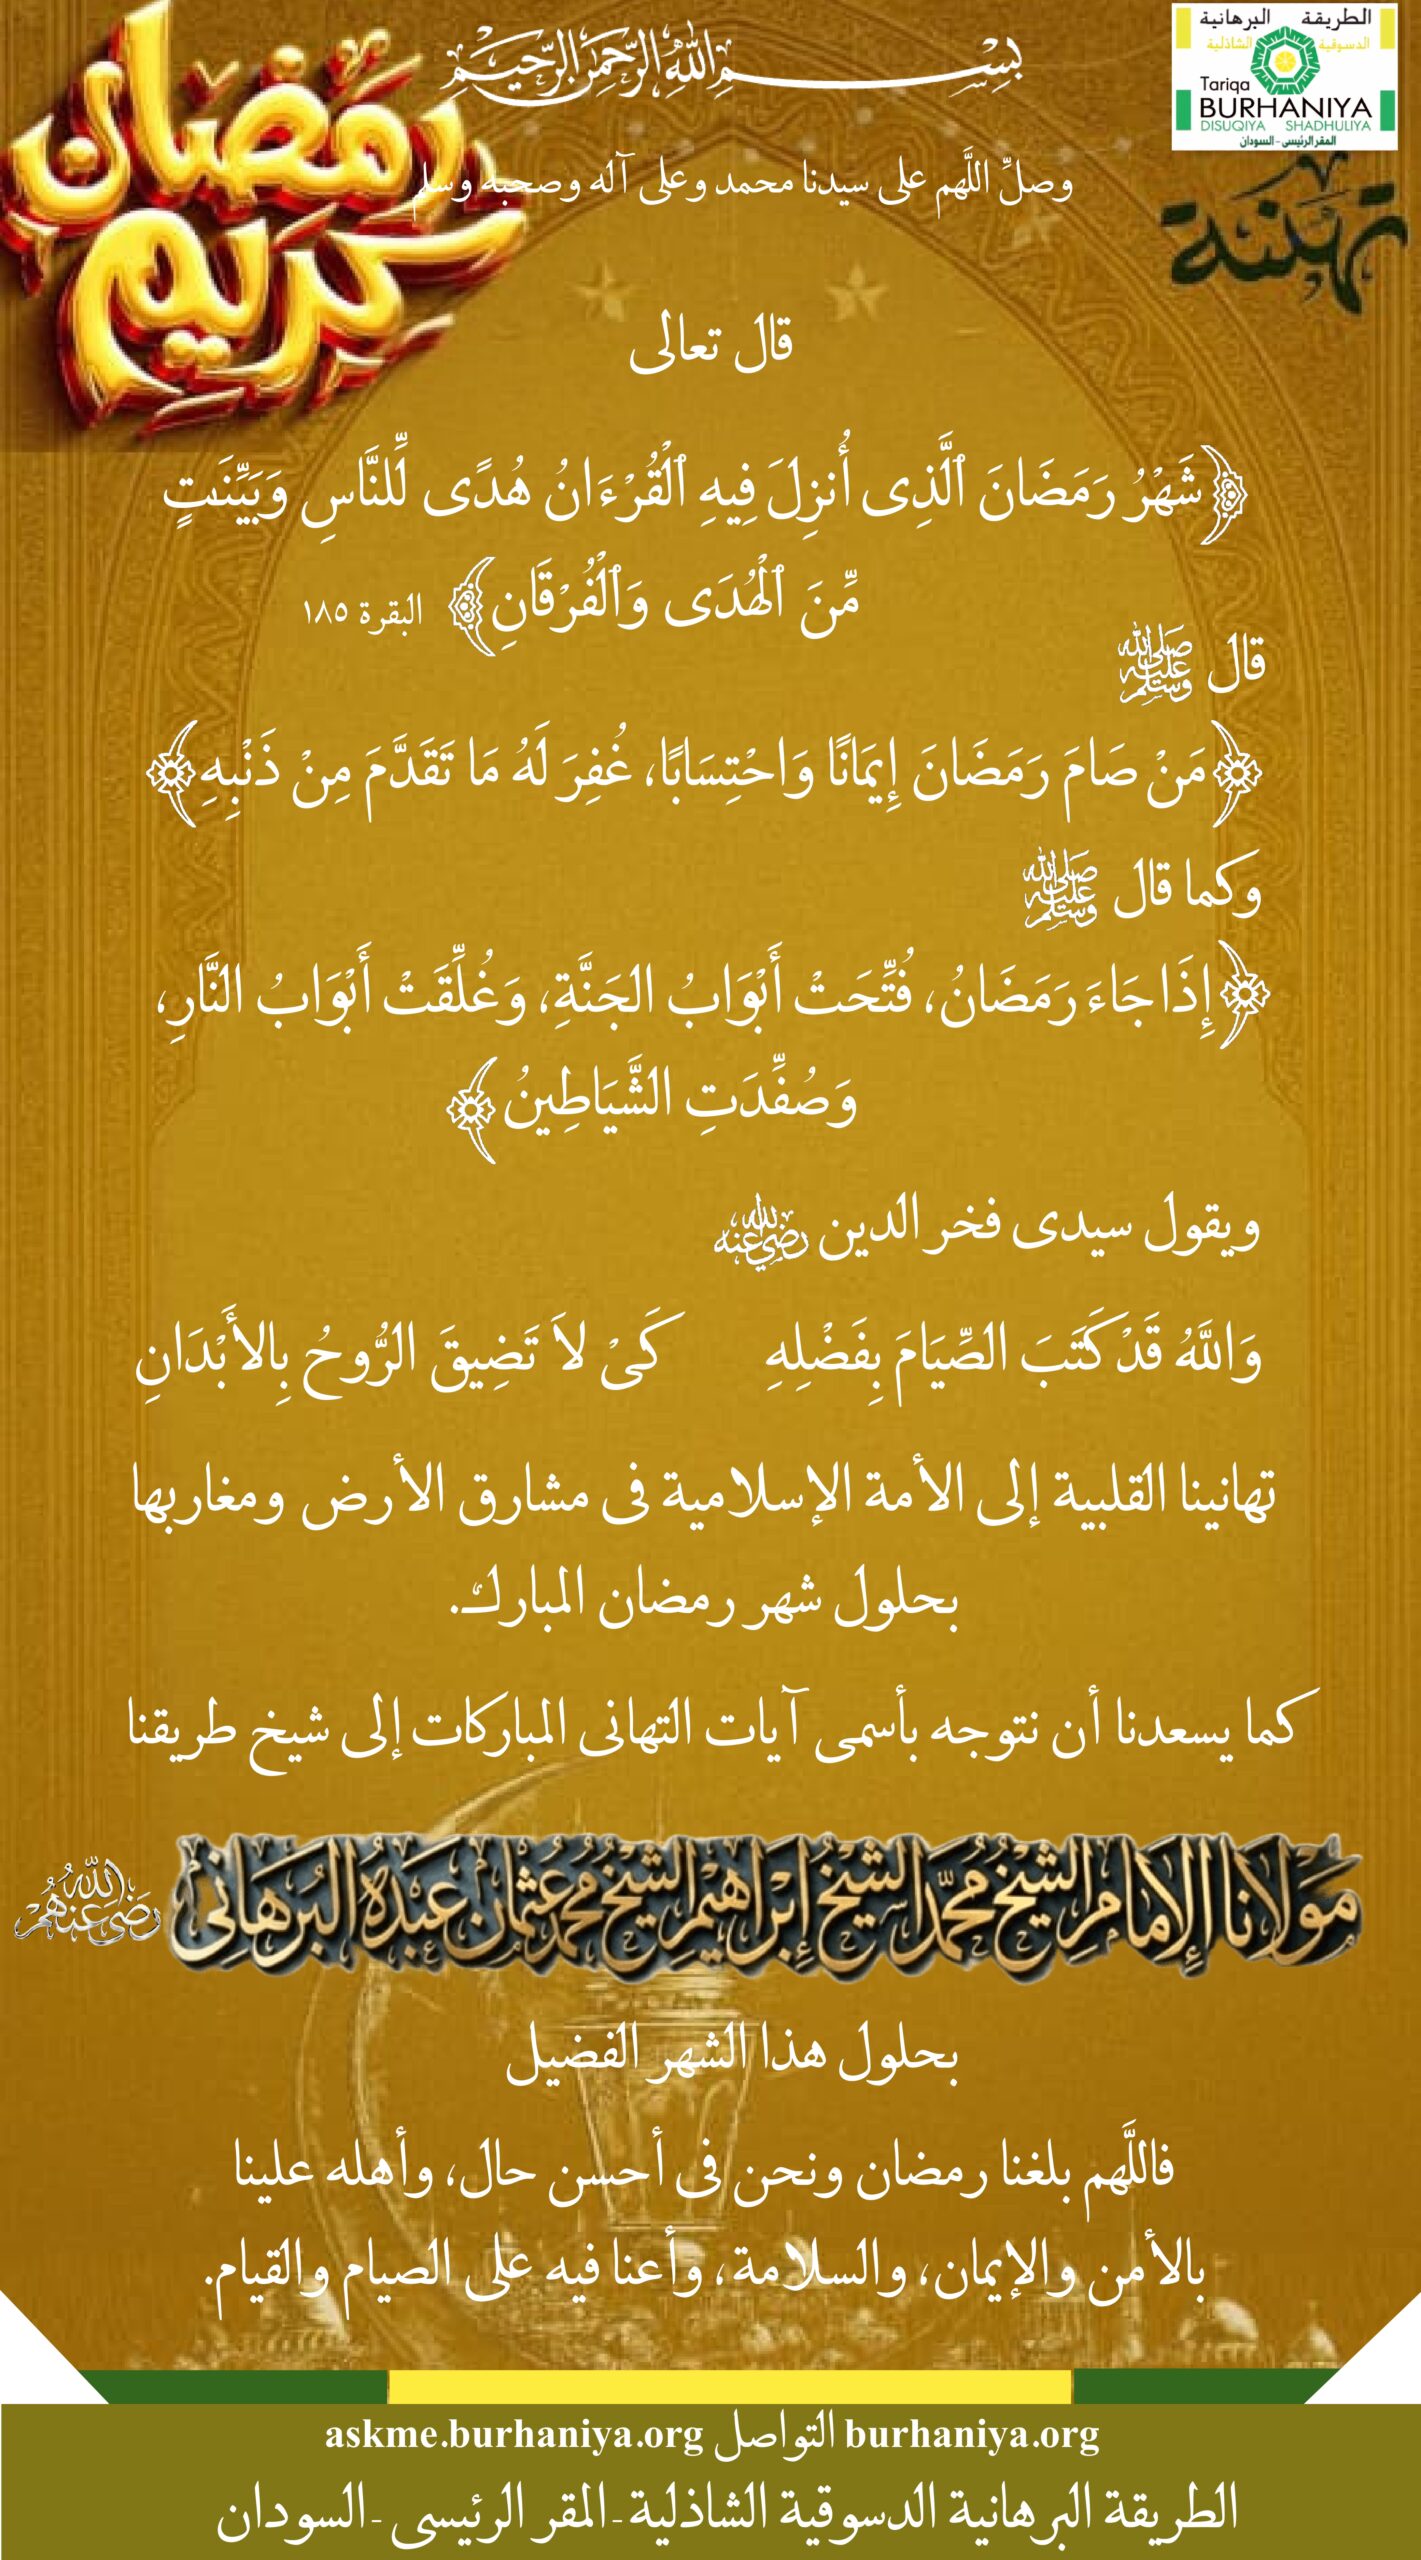 بِسْمِ اللهِ الرَّحْمَنِ الرَّحِيمِ
الطريقة البرهانية
الدسوقية الشاذلية
Tariqa
BURHANIYA
DISUQIYA SHADHULIYA
المقر الرئيسى - السودان
رمضان
كريم
وصلِّ اللَّهم على سيدنا محمد وعلى آله وصحبه وسلم
تهنئة
قال تعالى
﴿شَهْرُ رَمَضَانَ ٱلَّذِى أُنزِلَ فِيهِ ٱلْقُرْءَانُ هُدًى لِّلنَّاسِ وَبَيِّنَٰتٍ
مِّنَ ٱلْهُدَى وَٱلْفُرْقَانِ﴾ البقرة ١٨٥
قال ﷺ
﴿مَنْ صَامَ رَمَضَانَ إِيمَانًا وَاحْتِسَابًا، غُفِرَ لَهُ مَا تَقَدَّمَ مِنْ ذَنْبِهِ﴾
وكما قال ﷺ
﴿إِذَا جَاءَ رَمَضَانُ، فُتِّحَتْ أَبْوَابُ الجَنَّةِ، وَغُلِّقَتْ أَبْوَابُ النَّارِ،
وَصُفِّدَتِ الشَّيَاطِينُ﴾
ويقول سيدى فخر الدين رضي الله عنه
وَاللَّهُ قَدْ كَتَبَ الصِّيَامَ بِفَضْلِهِ كَىْ لاَ تَضِيقَ الرُّوحُ بِالأَبْدَانِ
تهانينا القلبية إلى الأمة الإسلامية فى مشارق الأرض ومغاربها
بحلول شهر رمضان المبارك.
كما يسعدنا أن نتوجه بأسمى آيات التهانى المباركات إلى شيخ طريقنا
مَوْلَانَا الإِمَامِ الشَّيْخِ مُحَمَّد الشَّيْخُ إِبْرَاهِيم الشَّيْخ مُحَمَّد عُثْمَان عَبْدُهُ البُرْهَانِى رَضِىَ اللَّهُ عَنْهُمْ
بحلول هذا الشهر الفضيل
فاللَّهم بلغنا رمضان ونحن فى أحسن حال، وأهله علينا
بالأمن والإيمان، والسلامة، وأعنا فيه على الصيام والقيام.
burhaniya.org التواصل askme.burhaniya.org
الطريقة البرهانية الدسوقية الشاذلية-المقر الرئيسى-السودان